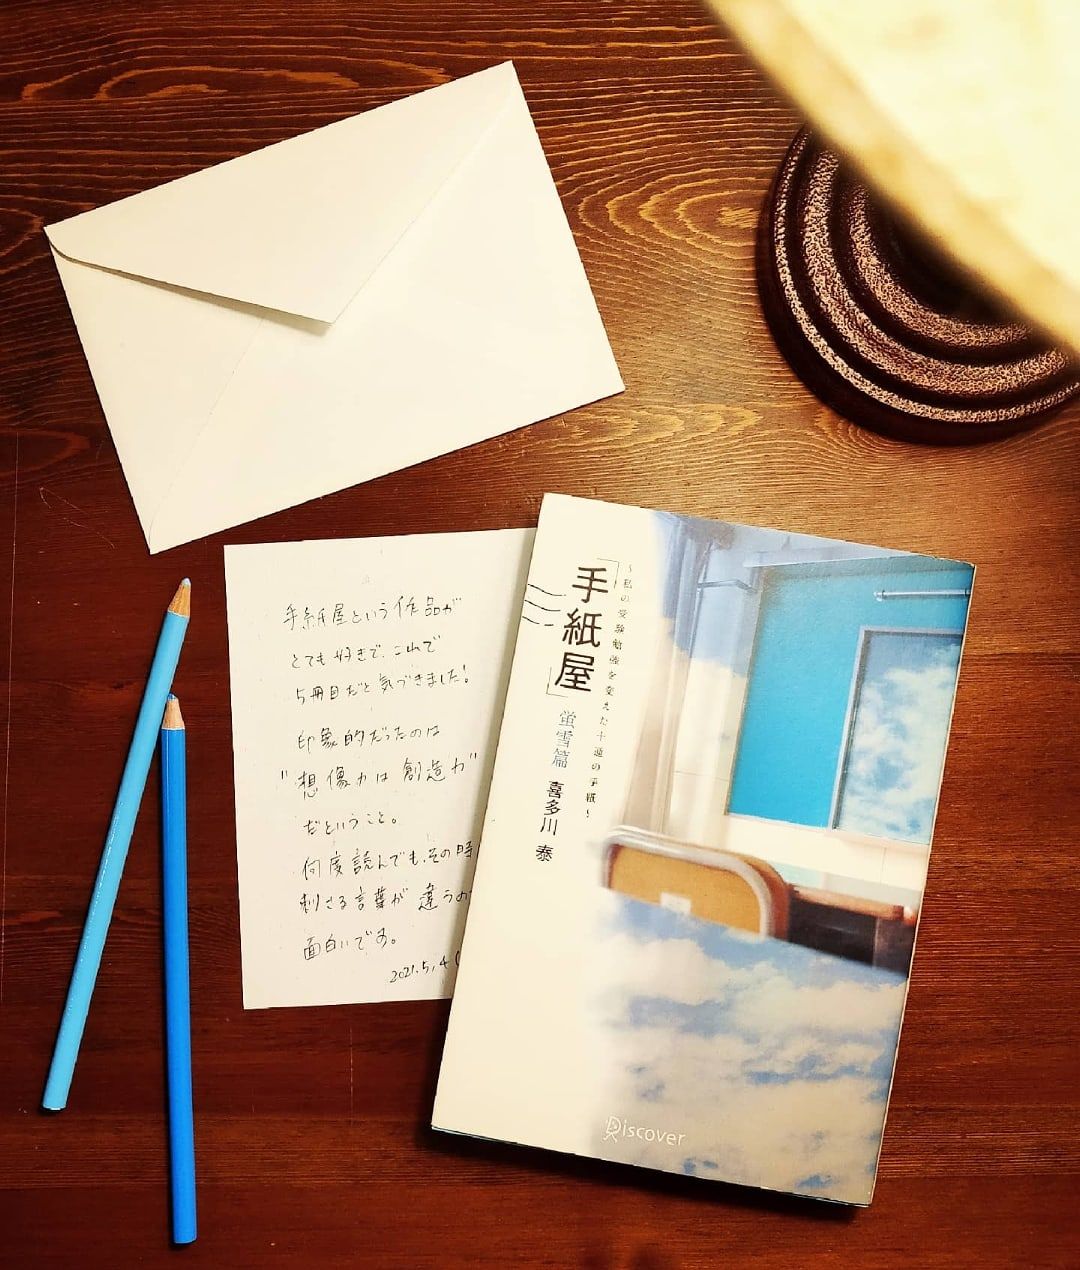 手紙屋という作品が
とても好きで、これで
5冊目だと気づきました!
印象的だったのは
"想像力は創造力"
だということ。
何度読んでも、その時
刺さる言葉が違うの
面白いです。
2021.5.4
「手紙屋」
蛍雪篇
喜多川 泰
~私の受験勉強を変えた十通の手紙~
Discover